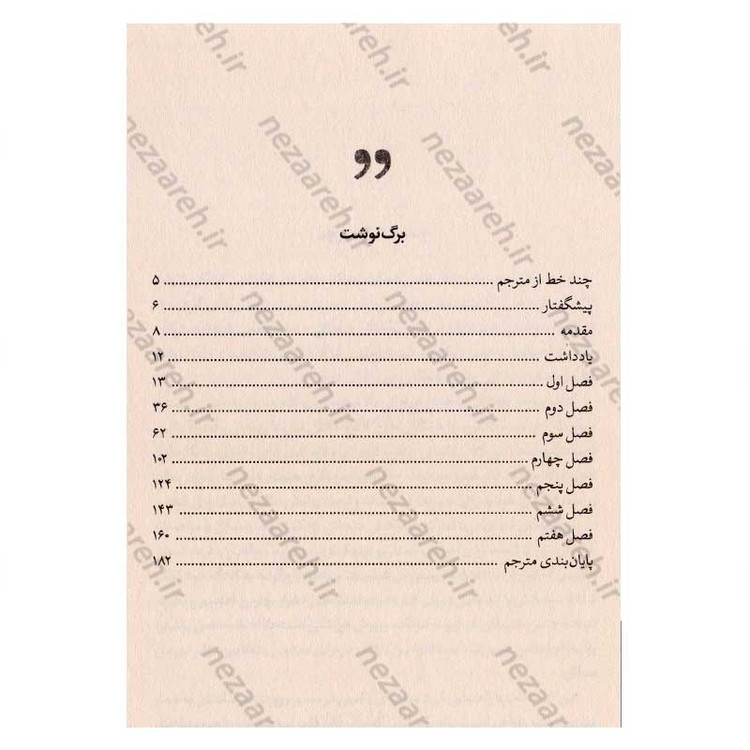 برگ‌نوشت
چند خط از مترجم ........ ۵
پیشگفتار ........ ۶
مقدمه ........ ۸
یادداشت ........ ۱۲
فصل اول ........ ۱۳
فصل دوم ........ ۳۶
فصل سوم ........ ۶۲
فصل چهارم ........ ۱۰۲
فصل پنجم ........ ۱۲۴
فصل ششم ........ ۱۴۳
فصل هفتم ........ ۱۶۰
پایان‌بندی مترجم ........ ۱۸۲
nezaareh.ir